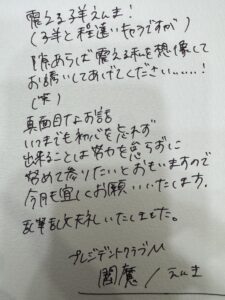 震える子羊えんま!
(子羊と程遠いキャラですが)
隙あらば震える私を想像して
お誘いしてあげてください……!
(笑)
真面目なお話
いつまでも初心を忘れず
出来ることは努力を怠らずに
努めて参りたいとおもいますので
今月も宜しくお願いいたします.
乱筆乱文失礼いたしました。
プレジデントクラブM
閻魔/えんま